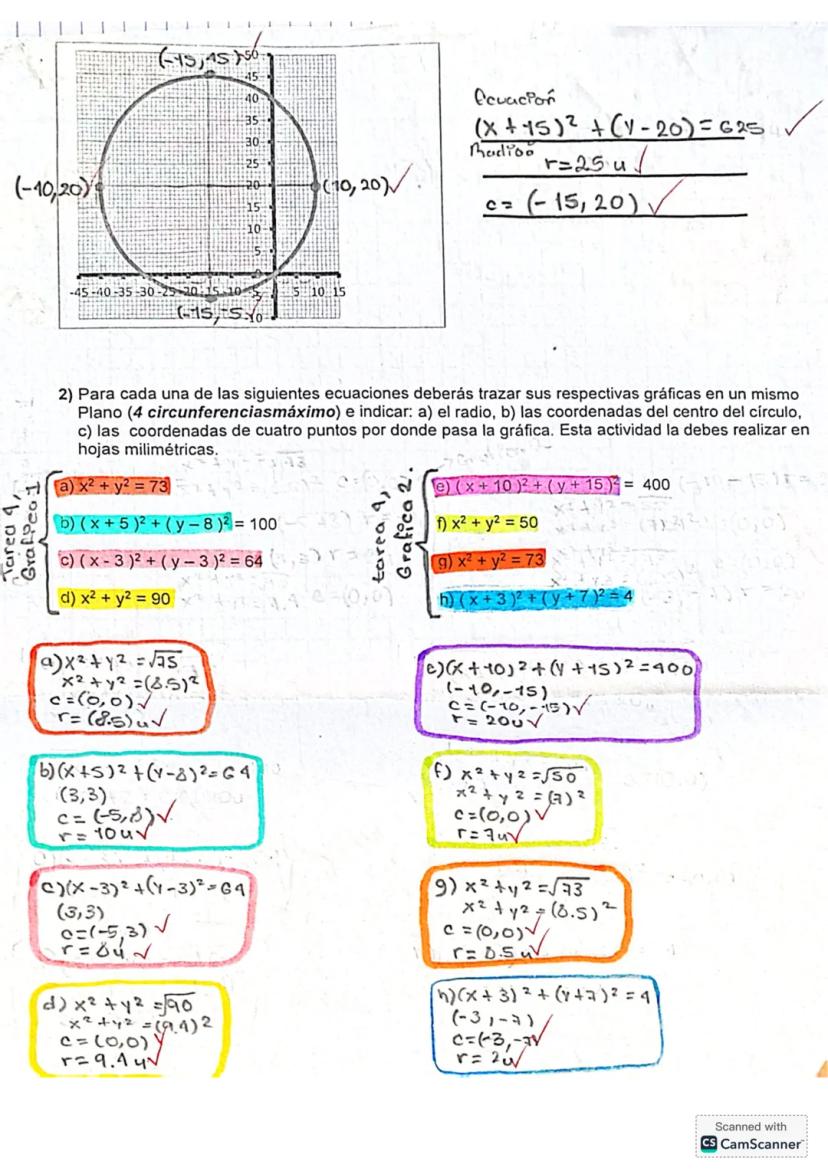 (-15,45)
50
45
40
35
30
25
(-40,20)
20
(10,20)
15
10
5
0
-45 -40 -35 -30 -25 -20 -15 -10 -5 5 10 15
(-15,-5)
-10
Ecuación
(x + 15)² + (y - 20) = 625
Radio
r = 25 u
c = (-15, 20)
2) Para cada una de las siguientes ecuaciones deberás trazar sus respectivas gráficas en un mismo
Plano (4 circunferenciasmáximo) e indicar: a) el radio, b) las coordenadas del centro del círculo,
c) las coordenadas de cuatro puntos por donde pasa la gráfica. Esta actividad la debes realizar en
hojas milimétricas.
Tarea 4,
Grafica 1
a) x² + y² = 73
b) ( x + 5 )² + ( y – 8 )² = 100
c) ( x - 3 )² + ( y – 3 )² = 64
d) x² + y² = 90
tarea 4,
Grafica 2.
e) ( x + 10 )² + ( y + 15 )² = 400
f) x² + y² = 50
g) x² + y² = 73
h) ( x + 3 )² + ( y + 7 )² = 4
a) x² + y² = √75
x² + y² = (8.5)²
c = (0,0)
r = (8.5) u
b) (x + 5)² + (y - 8)² = 64
(3,3)
c = (-5,8)
r = 10 u
c) (x - 3)² + (y - 3)² = 64
(3,3)
c = (-5,3)
r = 8 u
d) x² + y² = √90
x² + y² = (9.4)2
c = (0,0)
r = 9.4 u
e) (x + 10)² + (y + 15)² = 400
(-10,-15)
c = (-10,-15)
r = 20 u
f) x² + y² = √50
x² + y² = (7)²
c = (0,0)
r = 7 u
g) x² + y² = √73
x² + y² = (8.5)²
c = (0,0)
r = 8.5 u
h) (x + 3)² + (y + 7)² = 4
(-3,-7)
c = (-3,-7)
r = 2 u
Scanned with
CS CamScanner